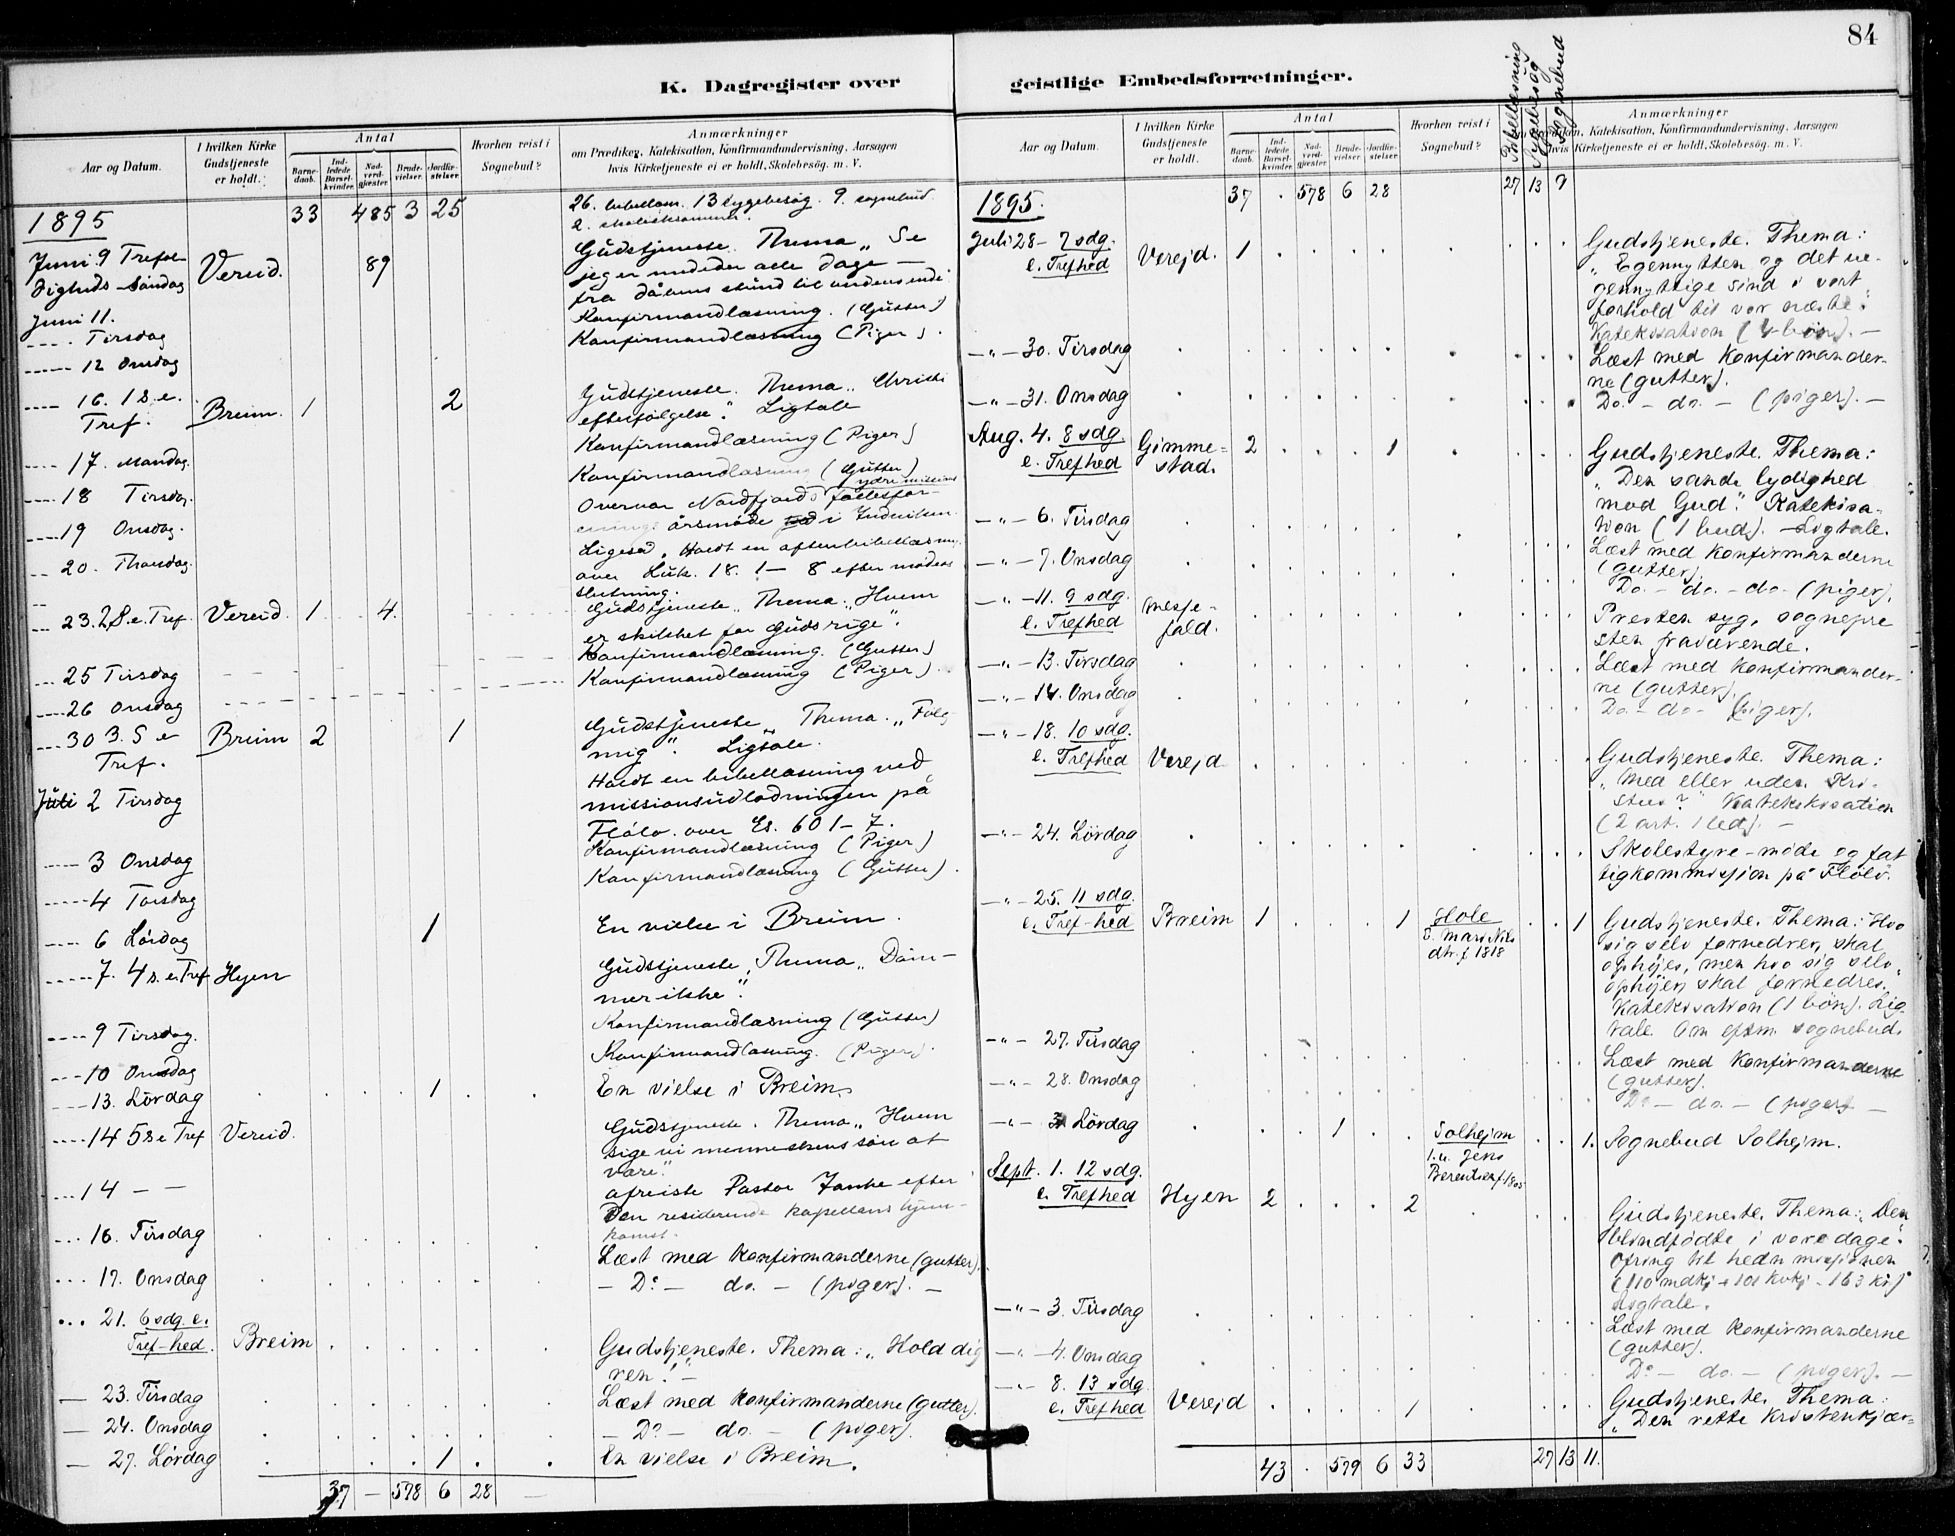 84
K. Dagregister over
Aar og Datum.
I hvilken Kirke Gudstjeneste er holdt.
Antal
Barnedaab.
Indledede Barselkvinder.
Nadverdgjæster.
Brudevielser.
Jordfæstelser.
Hvorhen reist i Sognebud?
Anmærkninger
om Prædiken, Katekisation, Konfirmandundervisning, Aarsagen
hvis Kirketjeneste ei er holdt, Skolebesøg. m. V.
1895 33 485 3 25 26. bibellæsn. 13 sygebesøg. 9. sognebud
2.
Juni 9 Trefol Vereid. 89 Gudstjeneste. Thema „Se
digheds-Søndag jeg er med eder alle dage —
fra dåbens stund til
Juni 11.
---- Tirsdag Konfirmandlæsning. (Gutter)
---- 12 Onsdag Konfirmandlæsning (Piger).
---- 16. 1 S. e. Tref. Breim. 1 2 Gudstjeneste. Thema „Christi
efterfølgelse." Ligtale
---- 17. Mandag. Konfirmandlæsning (Piger)
---- 18 Tirsdag. Konfirmandlæsning (Gutter)
---- 19 Onsdag. Overvar Nordfjords ydre missions fællesfor-
enings årsmøde i Indviken
-- 20. Thorsdag. Ligeså. Holdt en aftenbibellæsning
over Luk. 18. 1 — 8 efter mødets
slutning.
-- 23. 2. S. e. Tref. Vereid. 1 4. Gudstjeneste. Thema: „Hvem
er skikket for Guds rige".
--- 25 Tirsdag Konfirmandlæsning. (Gutter)
---- 26 Onsdag Konfirmandlæsning (Piger).
---- 30 3. S e Tref. Breim 2 1 Gudstjeneste „Thema. „Følg
mig". Ligtale.
Juli 2 Tirsdag Holdt en bibellæsning ved
missionsudlodningen på
Flólo. over Es. 60 1-7.
---- 3 Onsdag Konfirmandlæsning (Piger)
---- 4 Torsdag Konfirmandlæsning (Gutter).
---- 6 Lørdag 1 En vielse i Breim.
---- 7. 4 s. e. Tref Hyen Gudstjeneste. Thema „Døm-
mer ikke".
---- 9 Tirsdag. Konfirmandlæsning (Gutter)
--- 10 Onsdag Konfirmandlæsning. (Piger).
--- 13. Lørdag 1 En vielse i Breim.
---- 14 5 s e Tref Vereid. Gudstjeneste. Thema „Hvem
sige vi menneskens søn at
være."
--- 14 — — afreiste Pastor Janke efter
Den residerende kapellans hjem-
komst.
--- 16. Tirsdag Læst med konfirmanderne (gutter).
--- 17. Onsdag — Do — do. — (piger). —
... 21. 6 sdg. e. Tref-hed. Breim Gudstjeneste. Thema: „Hold dig
ren!" —
— 23. Tirsdag Læst med konfirmanderne (gutter).
— 24. Onsdag — Do — do. — (piger).
— 27. Lørdag 1 En vielse i Breim.
37 — 578 6 28 —
geistlige Embedsforretninger.
Aar og Datum.
I hvilken Kirke Gudstjeneste er holdt.
Antal
Barnedaab.
Indledede Barselkvinder.
Nadverdgjæster.
Brudevielser.
Jordfæstelser.
Hvorhen reist i Sognebud?
Bibellæsning
Sygebesøg
Sognebud
Anmærkninger
om Prædiken, Katekisation, Konfirmandundervisning, Aarsagen
hvis Kirketjeneste ei er holdt, Skolebesøg. m. V.
1895. 37 . 578 6 28 27 13 9
Juli 28 - 7 sdg. e. Trefhed Verejd. 1 Gudstjeneste. Thema:
„Egennytten og det ue-
gennyttige sind i vort
forhold til vor næste."
Katekisation (4 bön). —
—"— 30. Tirsdag Læst med konfirmander-
ne (gutter).
—"— 31. Onsdag Do. — do. — (piger). —
Aug. 4. 8 sdg. e. Trefhed Gimme-stad. 2 1 Gudstjeneste. Thema:
„Den sande lydighed
mod Gud". Katekisa-
tion (1 bud). — Ligtale.
—"— 6. Tirsdag Læst med konfirmanderne
(gutter).
—"— 7. Onsdag Do. — do. — do. (piger).
—"— 11. 9 sdg. e. Trefhed messefald. Presten syg, sognepre
sten fraværende.
—"— 13. Tirsdag Læst med konfirmander-
ne (gutter).
—"— 14. Onsdag Do. — do — (piger).
—"— 18. 10 sdg. e. Trefhed Verejd Gudstjeneste. Thema:
„Med eller uden Kri-
stus?" Katekisation
(2 art. 1 led). —
—"— 24. Lördag Skolestyre-møde og fat
tigkommission på Flölo.
—"— 25. 11 sdg. e. Tref-hed Breim 1 1 Hole 1 Gudstjeneste. Thema: Hvo
dtr. f 1818 sig selv fornedrer, skal
ophöjes, men hvo sig selv
ophöjer, skal fornedres.
Katekisation (1 bön). Lig-
tale. Om eftm. sognebud.
—"— 27. Tirsdag Læst med konfirmanderne
(gutter).
—"— 28. Onsdag Do — do. — (piger) —
—"— 31 Lördag 1 Solhejm 1. Sognebud Solhejm.
Jens
Sept. 1. 12 sdg. e. Trefhed Hyen 2 2 Gudstjeneste. Thema: „Den
blindfødte i vore dage".
Ofring til hednmissionen
Ligtale.
—"— 3. Tirsdag Læst med konfirmanderne
(gutter).
—"— 4. Onsdag Do — do — (piger). —
—"— 8. 13 sdg. e. Trefhed Verejd 1 Gudstjeneste. Thema:
„Den rette kristenkjær-
43 . 579 6 33 27 13 11.